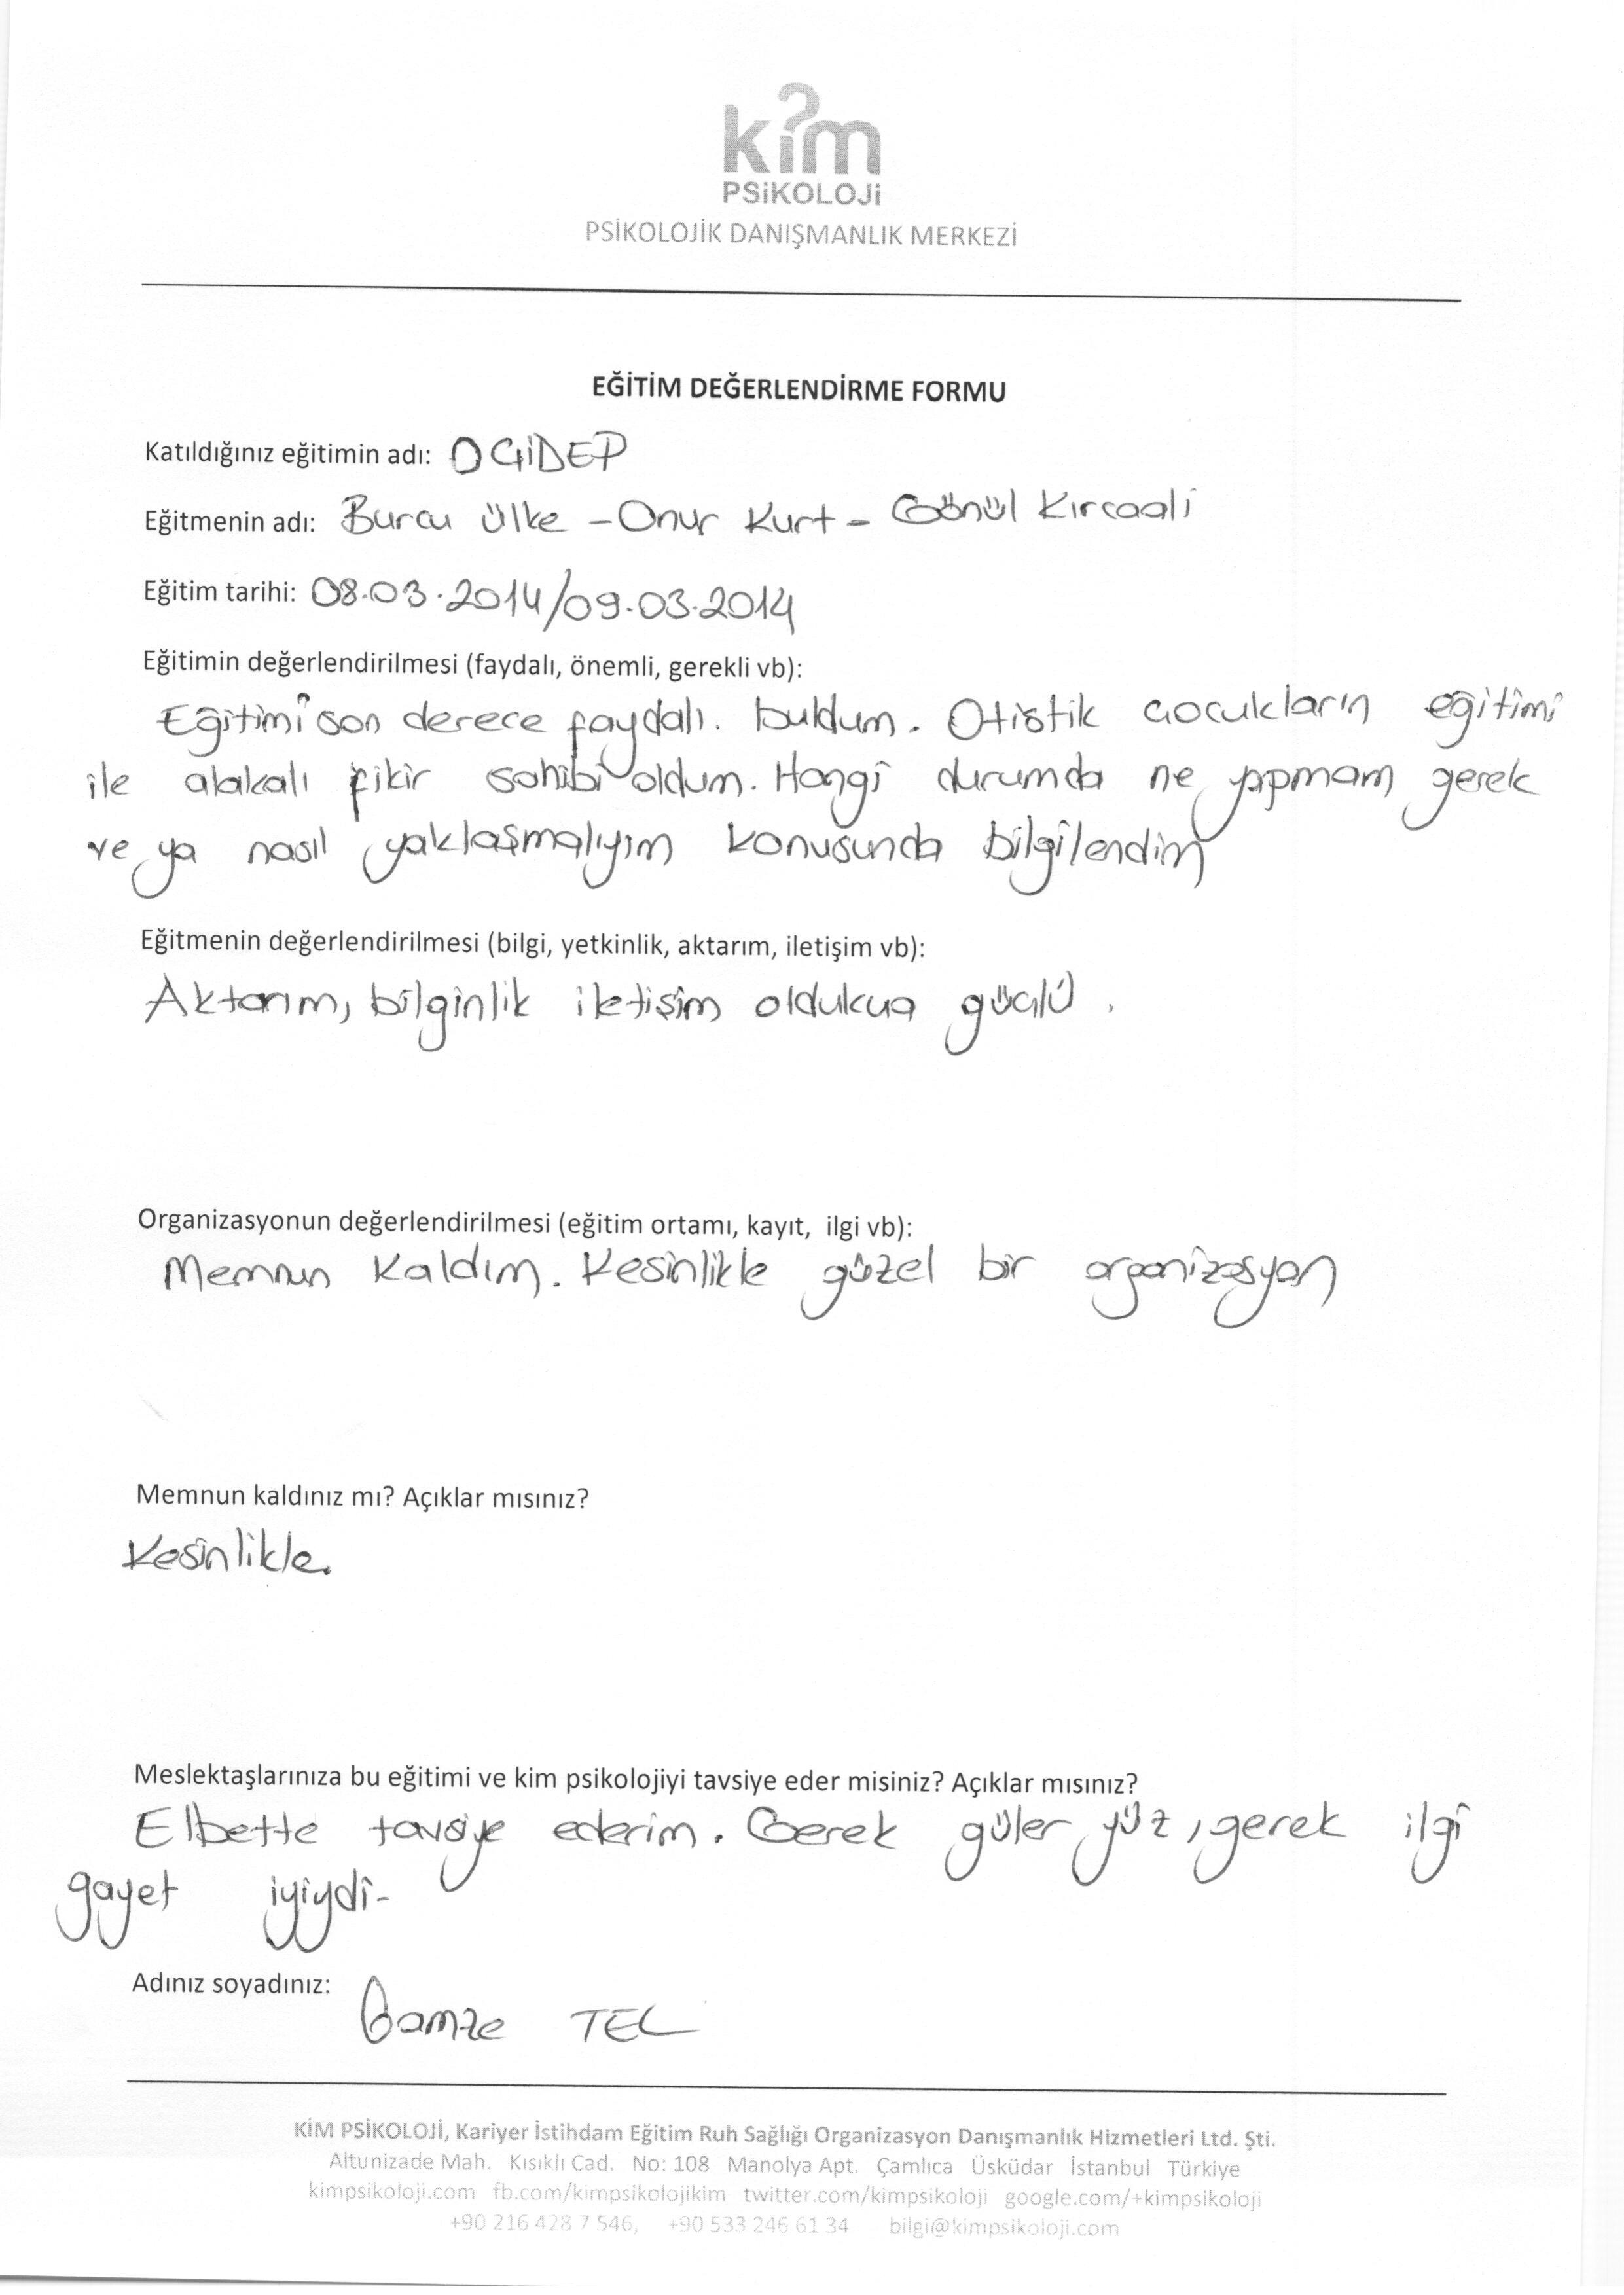 kim
PSiKOLOJi
PSİKOLOJİK DANIŞMANLIK MERKEZİ
EĞİTİM DEĞERLENDİRME FORMU
Katıldığınız eğitimin adı: OGİDEP
Eğitmenin adı: Burcu Ülke - Onur Kurt - Gönül Kırcaali
Eğitim tarihi: 08.03.2014/09.03.2014
Eğitimin değerlendirilmesi (faydalı, önemli, gerekli vb):
Eğitimi son derece faydalı. buldum. Otistik çocukların eğitimi
ile alakalı fikir sahibi oldum. Hangi durumda ne yapmam gerek
ve ya nasıl yaklaşmalıyım konusunda bilgilendim
Eğitmenin değerlendirilmesi (bilgi, yetkinlik, aktarım, iletişim vb):
Aktarım, bilginlik iletişim oldukça güçlü.
Organizasyonun değerlendirilmesi (eğitim ortamı, kayıt, ilgi vb):
Memnun kaldım. Kesinlikle güzel bir organizasyon
Memnun kaldınız mı? Açıklar mısınız?
Kesinlikle.
Meslektaşlarınıza bu eğitimi ve kim psikolojiyi tavsiye eder misiniz? Açıklar mısınız?
Elbette tavsiye ederim. Gerek güler yüz, gerek ilgi
gayet iyiydi-
Adınız soyadınız:
Gamze TEL
KİM PSİKOLOJİ, Kariyer İstihdam Eğitim Ruh Sağlığı Organizasyon Danışmanlık Hizmetleri Ltd. Şti.
Altunizade Mah. Kısıklı Cad. No: 108 Manolya Apt. Çamlıca Üsküdar İstanbul Türkiye
kimpsikoloji.com fb.com/kimpsikolojikim twitter.com/kimpsikoloji google.com/+kimpsikoloji
+90 216 428 7 546, +90 533 246 61 34 bilgi@kimpsikoloji.com